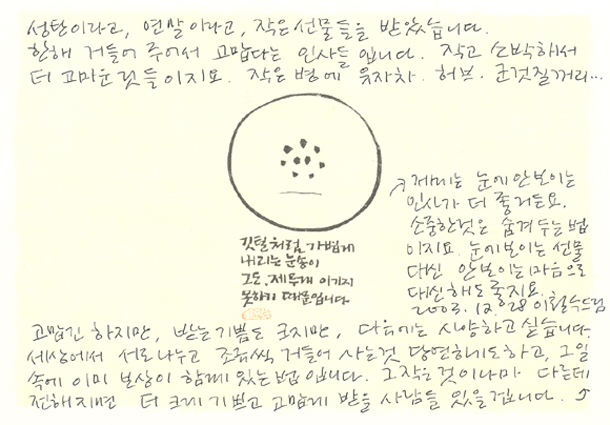 성탄이라고, 연말이라고, 작은 선물들을 받았습니다.
한해 거들어 주어서 고맙다는 인사들 입니다. 작고 소박해서
더 고마운 것들이지요. 작은 병에 유자차. 허브. 군것질거리...
깃털처럼 가볍게
내리는 눈송이
그도, 제무게 이기지
못하기 때문입니다
고맙긴 하지만, 받는기쁨도 크지만, 다음에는 사양하고 싶습니다.
세상에서 서로 나누고 조금씩 거들어 사는것 당연하기도하고, 그일
속에 이미 보상이 함께 있는 법입니다. 그작은 것이나마 다른데
전해지면 더 크게 기쁘고 고맙게 받을 사람들 있을겁니다.
재미는 눈에 안보이는
인사가 더 좋거든요.
소중한것은 숨겨 두는 법
이지요. 눈에 보이는 선물
대신 안보이는 마음으로
대신해도 좋지요.
2003. 12. 28 이철수드림